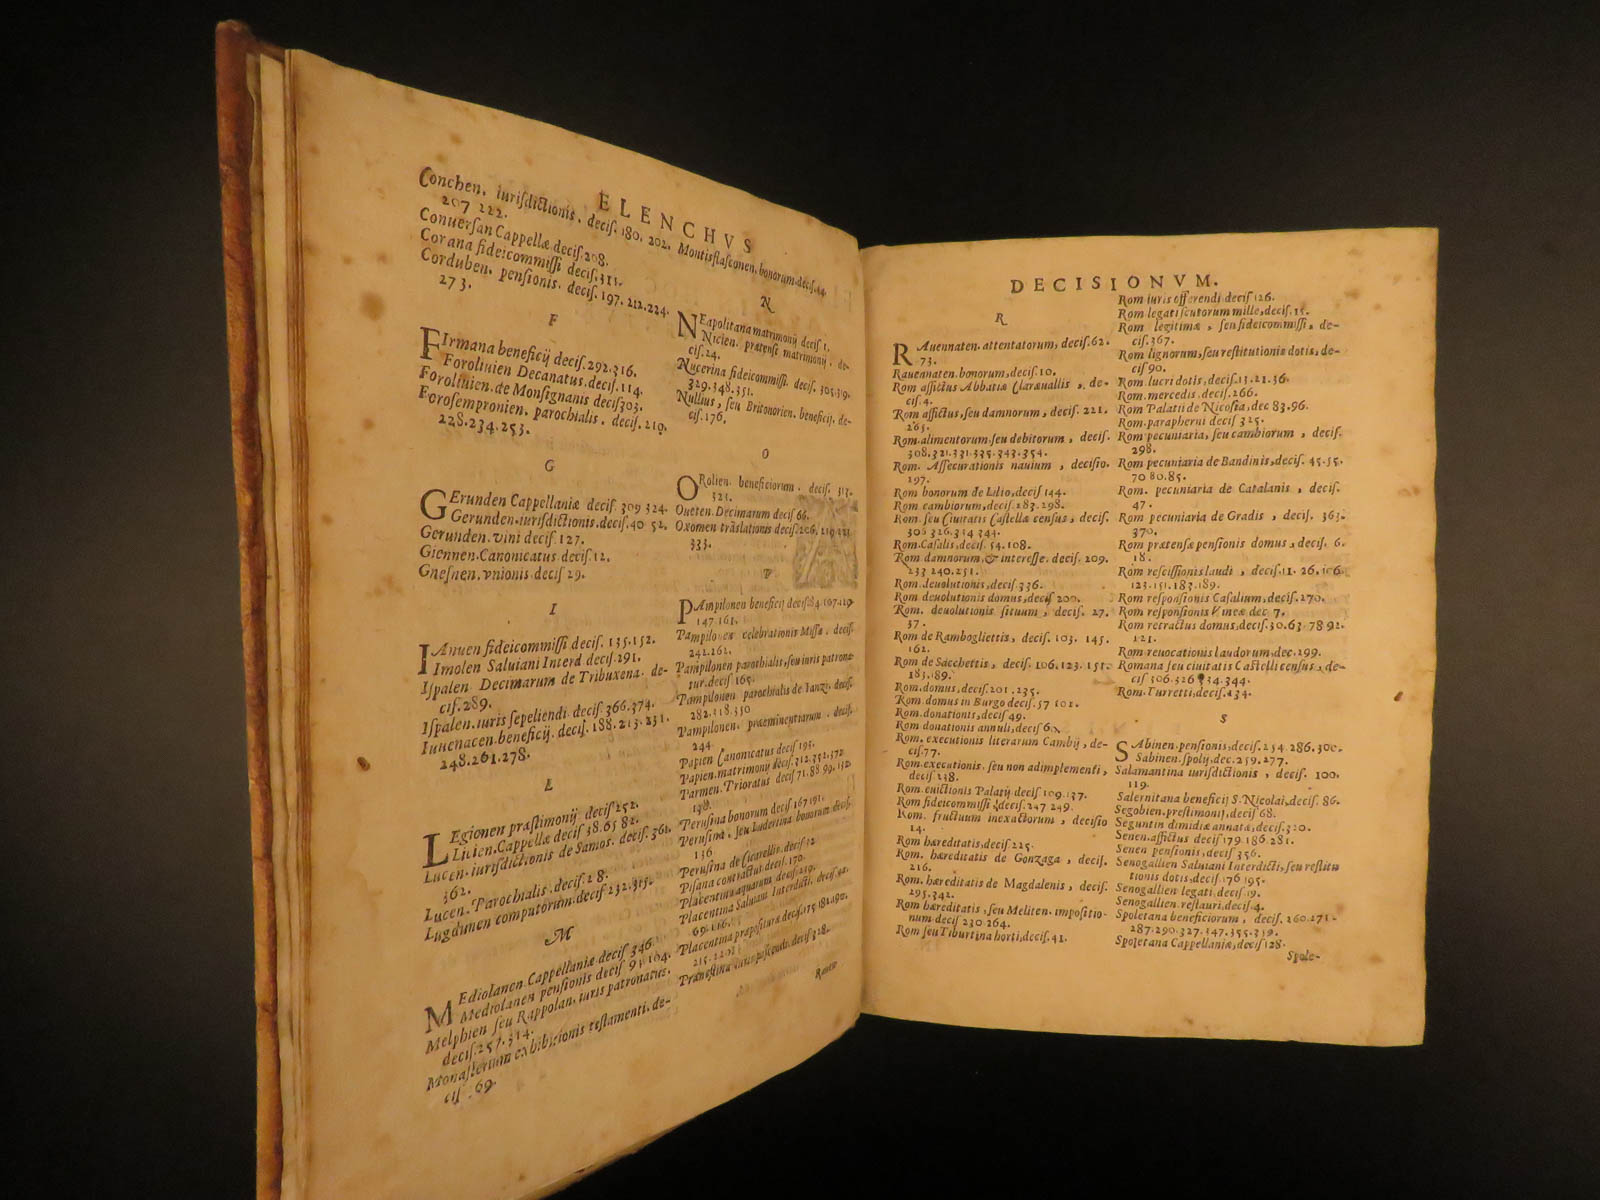 ELENCHVS
Conchen. iurisdictionis. decis. 180. 202.
207 222.
Conuersan Cappellæ decis. 208.
Corana fideicommissi decis. 311.
Corduben. pensionis. decis. 197. 212. 224.
273.
F
FIrmana beneficij decis. 292. 316.
Foroliuien Decanatus. decis. 114.
Foroliuien. de Monsignanis decis 303.
Forosempronien. parochialis. decis. 219.
228. 234. 253.
G
GErunden Cappellaniæ decis 309 324.
Gerunden. iurisdictionis. decis. 40 52.
Gerunden. vini decis. 127.
Giennen. Canonicatus decis 12.
Gnesnen. vnionis decis 29.
I
IAnuen fideicommissi decis. 135. 152.
Imolen Saluiani Interd decis. 291.
Ispalen Decimarum de Tribuxena. de-
cis. 289.
Ispalen. iuris sepeliendi. decis. 366. 374.
Iuuenacen. beneficij. decis. 188. 213. 231.
248. 261. 278.
L
LEgionen præstimonij decis 252.
Lilien. Cappellæ decis 38. 65 82.
Lucen. iurisdictionis de Samos. decis. 361.
362.
Lucen. Parochialis. decis. 28.
Lugdunen computorum. decis 232. 315.
M
MEdiolanen Cappellaniæ decis 346.
Mediolanen pensionis decis 93 104.
Melphien seu Rappolan. iuris patronatus.
decis. 257. 314.
Monasterium exhibitionis testamenti. de-
cis. 69.
Montisflasconen. bonorum. decis. 44.
N
NEapolitana matrimonij decis 1.
Nicien. prætensę matrimonij. de-
cis. 24.
Nucerina fideicommissi. decis. 305. 319.
329. 348. 351.
Nullius, seu Britonorien. beneficij. de-
cis. 176.
O
ORolien. beneficiorum. decis. 313.
323.
Oueten. Decimarum decis 66.
Oxomen trãslationis decis 206. 219. 221.
333.
P
PAmpilonen beneficij decis 84. 107. 119
147 161.
Pampilonen celebrationis Missæ. decis.
242. 262.
Pampilonen parochialis, seu iuris patrona-
tus. decis 165.
Pampilonen parochialis de decis.
282. 318. 330
Pampilonen. præeminentiarum. decis.
244.
Papien Canonicatus decis 195.
Papien. matrimonij decis. 312. 352. 372.
Parmen. Prioratus decis 71. 88. 99. 132.
138.
Perusina bonorum decis 167 191.
Perusina, seu bonorum decis.
136.
Perusina de Cicarellis. decis 12
Pisana contractus decis. 170.
Placentina aquarum decis. 219.
Placentina Saluiani Interdicti. decis. 42.
69. 116.
Placentina præpositure decis. 175 182. 192.
215. 220.
Prænestina iuris pascendi. decis 328.
Rauen
DECISIONVM.
R
RAuennaten. attentatorum, decis. 62.
73.
Rauennaten. bonorum, decis. 10.
Rom affictus Abbatiæ Claræuallis, de-
cis. 4.
Rom affictus, seu damnorum, decis. 221.
265.
Rom. alimentorum seu debitorum, decis.
308. 321. 331. 335. 343. 354.
Rom. Assecurationis nauium, decisio
197.
Rom bonorum de Lilio, decis 144.
Rom cambiorum, decis. 283. 298.
Rom. seu Ciuitatis Castellæ census, decis.
306 326. 334 344.
Rom. Casalis, decis. 54. 108.
Rom damnorum, & interesse. decis. 209.
233 240. 251.
Rom. deuolutionis, decis. 336.
Rom deuolutionis domus, decis 200.
Rom. deuolutionis situum, decis. 27.
37.
Rom de Rambogliettis, decis. 103. 145.
162.
Rom de Sacchettis, decis. 106. 123. 151.
183. 189.
Rom. domus, decis. 201. 235.
Rom. domus in Burgo decis. 57 101.
Rom. donationis, decis 49.
Rom donationis annuli, decis 60.
Rom. executionis literarum Cambij, de-
cis. 77.
Rom. executionis. seu non adimplementi,
decis 238.
Rom. euictionis Palatij decis 109. 137.
Rom fideicommissi, decis. 247 249.
Rom. fructuum inexactorum, decisio
14.
Rom hæreditatis, decis 225.
Rom. hæreditatis de Gonzaga, decis.
216.
Rom. hæreditatis de Magdalenis, decis.
295. 342.
Rom hæreditatis, seu Meliten. impositio-
num decis 230 264.
Rom seu Tiburtina horti, decis. 41.
Rom iuris offerendi decis 126.
Rom legati scutorum mille, decis. 15.
Rom legitimæ, seu fideicommissi, de-
cis. 367.
Rom lignorum, seu restitutionis dotis, de-
cis 90.
Rom lucri dotis, decis. 13. 21. 36.
Rom. mercedis. decis. 266.
Rom Palatij de Nicosia, dec 83. 96.
Rom. parapherni decis 325.
Rom pecuniaria, seu cambiorum, decis.
298.
Rom pecuniaria de Bandinis, decis. 45. 55.
70 80. 85.
Rom. pecuniaria de Catalanis, decis.
47.
Rom pecuniaria de Gradis, decis. 363.
370.
Rom prætensæ pensionis domus, decis. 6.
18.
Rom rescissionis laudi, decis. 11. 26. 106.
123. 151. 183. 189.
Rom responsionis Casalium, decis. 270.
Rom responsionis Vineæ dec. 7.
Rom retractus domus, decis. 30. 63. 78 92.
121.
Rom reuocationis laudorum, dec. 299.
Romana seu ciuitatis Castelli census, de-
cis 306. 326 334. 344.
Rom. Turretti, decis. 134.
S
SAbinen. pensionis, decis. 254. 286. 300.
Sabinen. spolij, dec. 259. 277.
Salamantina iurisdictionis, decis. 100.
119.
Salernitana beneficij S. Nicolai, decis. 86.
Segobien. prestimonij, decis 68.
Seguntin dimidiæ annatæ, decis. 320.
Senen. affictus decis 179. 186. 281.
Senen pensionis, decis 356.
Senogallien Saluiani Interdicti, seu restitu
tionis dotis, decis. 176 195.
Senogallien legati, decis. 19.
Senogallien. restauri, decis. 4.
Spoletana beneficiorum, decis. 260. 271.
287. 290. 327. 347. 355. 359.
Spoletana Cappellaniæ, decis 128.
Spole-